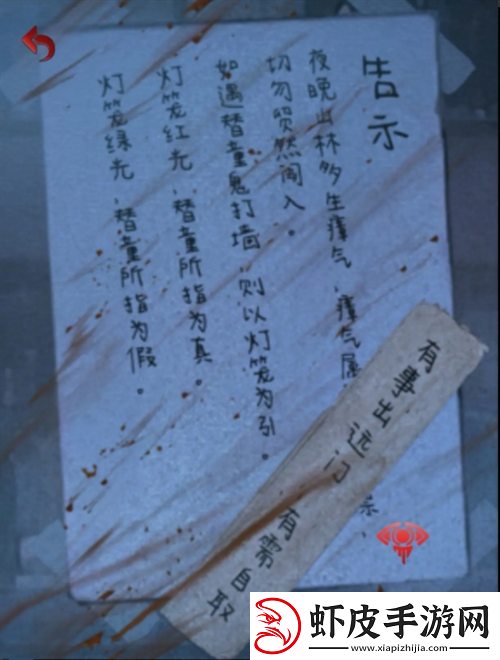 告示
夜晚山林多生瘴气，瘴气属
切勿贸然闯入。
如遇替童鬼打墙，则以灯笼为引。
灯笼红光，替童所指为真。
灯笼绿光，替童所指为假。
有事出远门
有需自取
虾皮手游网
www.xiapizhijia.com